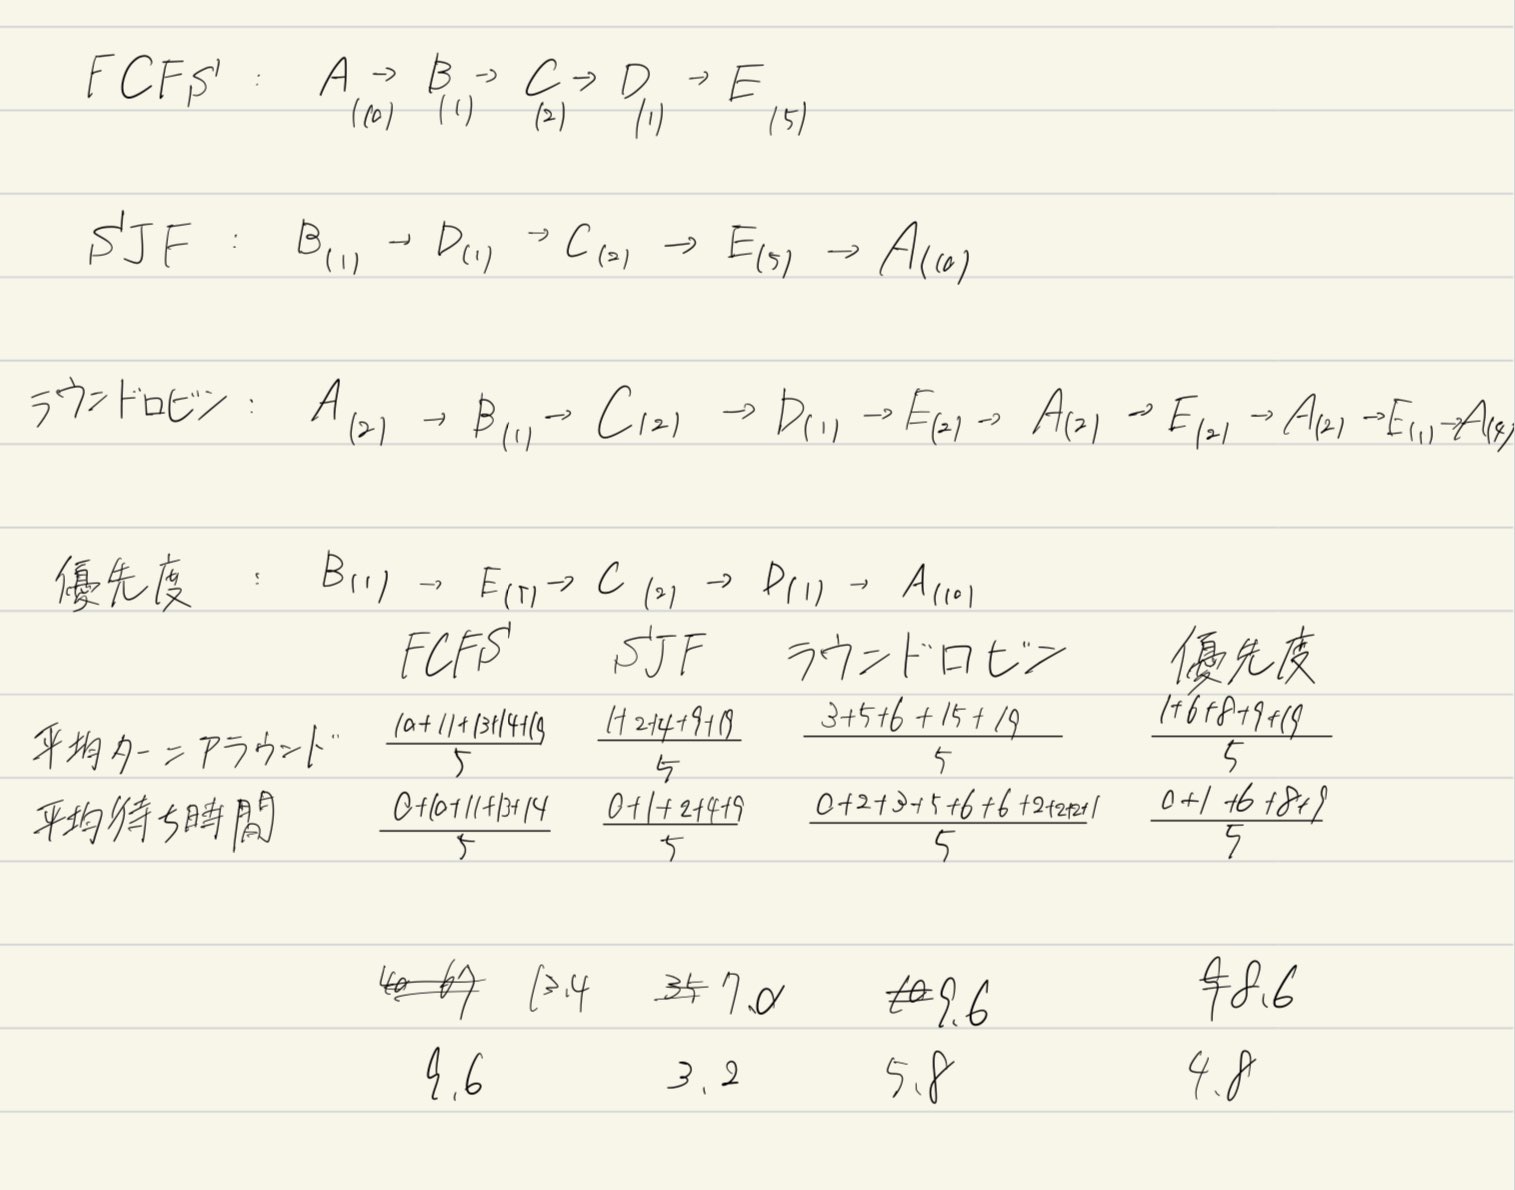 FCFS : A(10) → B(1) → C(2) → D(1) → E(5)
SJF : B(1) → D(1) → C(2) → E(5) → A(10)
ラウンドロビン : A(2) → B(1) → C(2) → D(1) → E(2) → A(2) → E(2) → A(2) → E(1) → A(4)
優先度 : B(1) → E(5) → C(2) → D(1) → A(10)
FCFS SJF ラウンドロビン 優先度
平均ターンアラウンド (10+11+13+14+19)/5 (1+2+4+9+19)/5 (3+5+6+15+19)/5 (1+6+8+9+19)/5
平均待ち時間 (0+10+11+13+14)/5 (0+1+2+4+9)/5 (0+2+3+5+6+6+2+2+2+1)/5 (0+1+6+8+9)/5
13.4 7.0 9.6 8.6
9.6 3.2 5.8 4.8